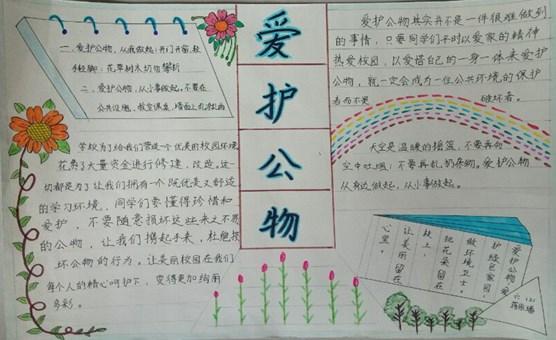 爱护公物
一、爱护公物,从我做起:开门开窗,轻
手轻脚;花草树木切勿攀折
二、爱护公物,从小事做起,不要在
公共设施、教室课桌、墙面上乱涂乱画
学校为了给我们营造一个优美的校园环境
花费了大量资金进行修建、改造。这一
切都是为了让我们拥有一个既优美又舒适
的学习环境。同学们要懂得珍惜和
爱护,不要随意损坏这些来之不易
的公物,让我们携起手来,杜绝损
坏公物的行为。让美丽校园在我们
每个人的精心呵护下,变得更加绚丽
多彩。
爱护公物其实并不是一件很难做到
的事情,只要同学们平时以爱家的精神
热爱校园,以爱惜自己的一身一体来爱护
公物,就一定会成为一位公共环境的保护
者而不是破坏者。
天空是温暖的摇篮,不要再向
空中吐烟;不要再乱扔杂物。爱护公物
从身边做起,从小事做起。
爱护公物爱
护绿色家园,
做环境卫士。
把花朵留在
枝上,
让美丽留在
心里。